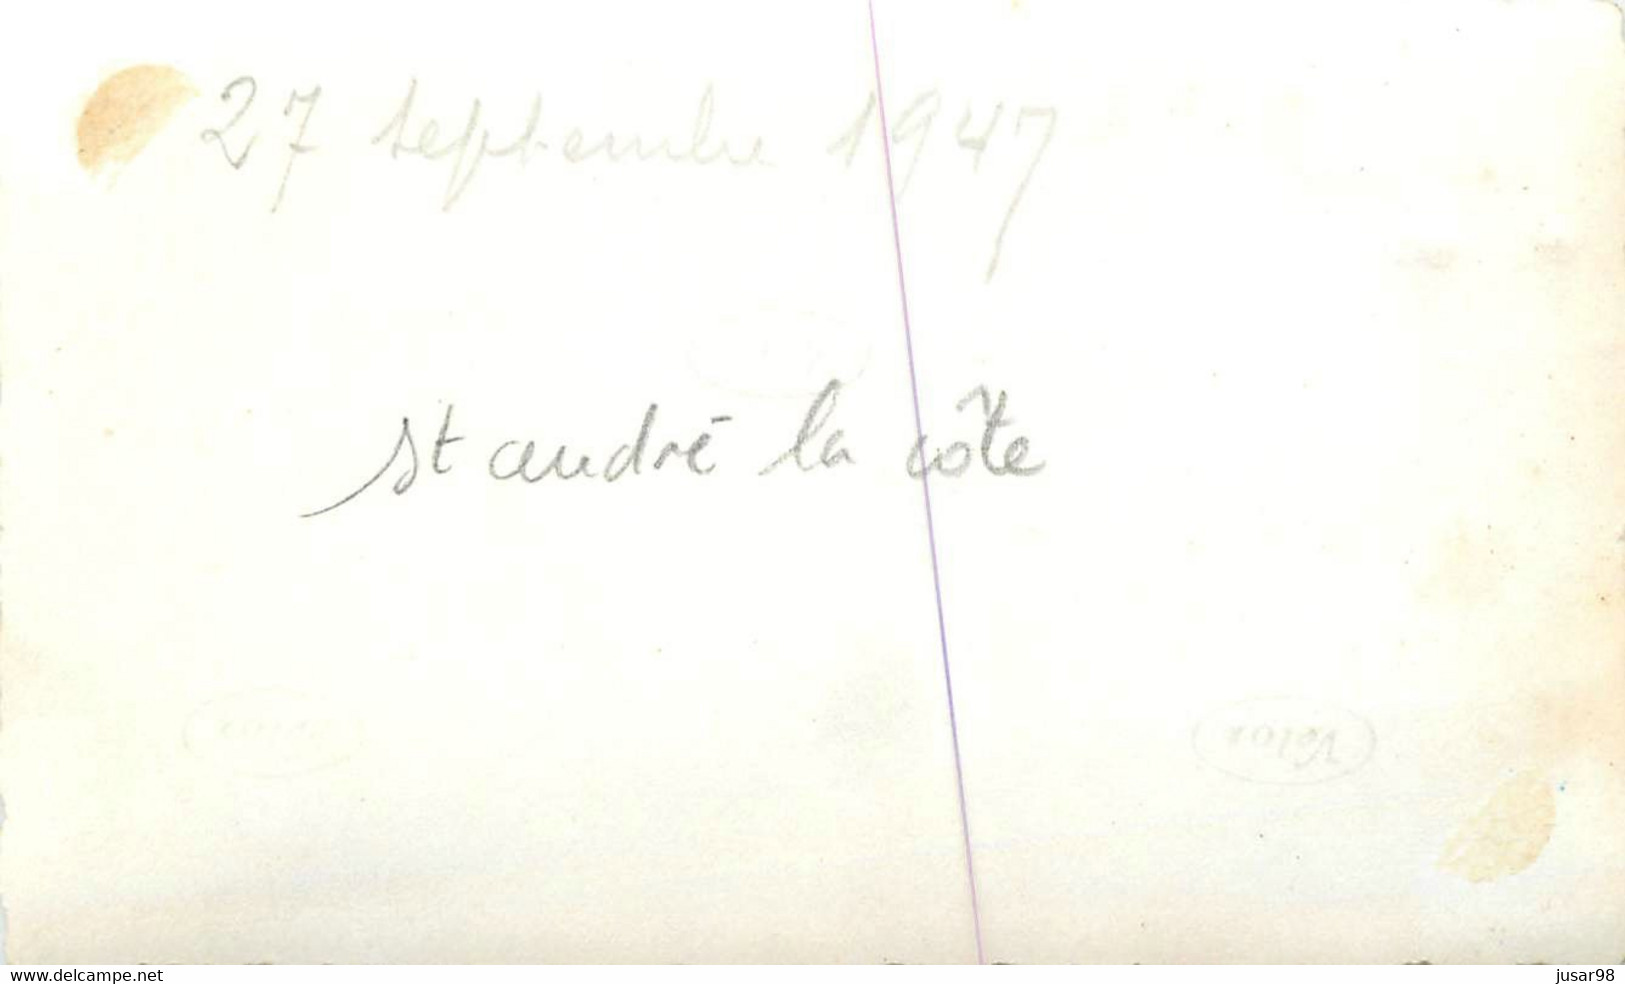 27 septembre 1947
st andré la côte
Velox
www.delcampe.net
jusar98